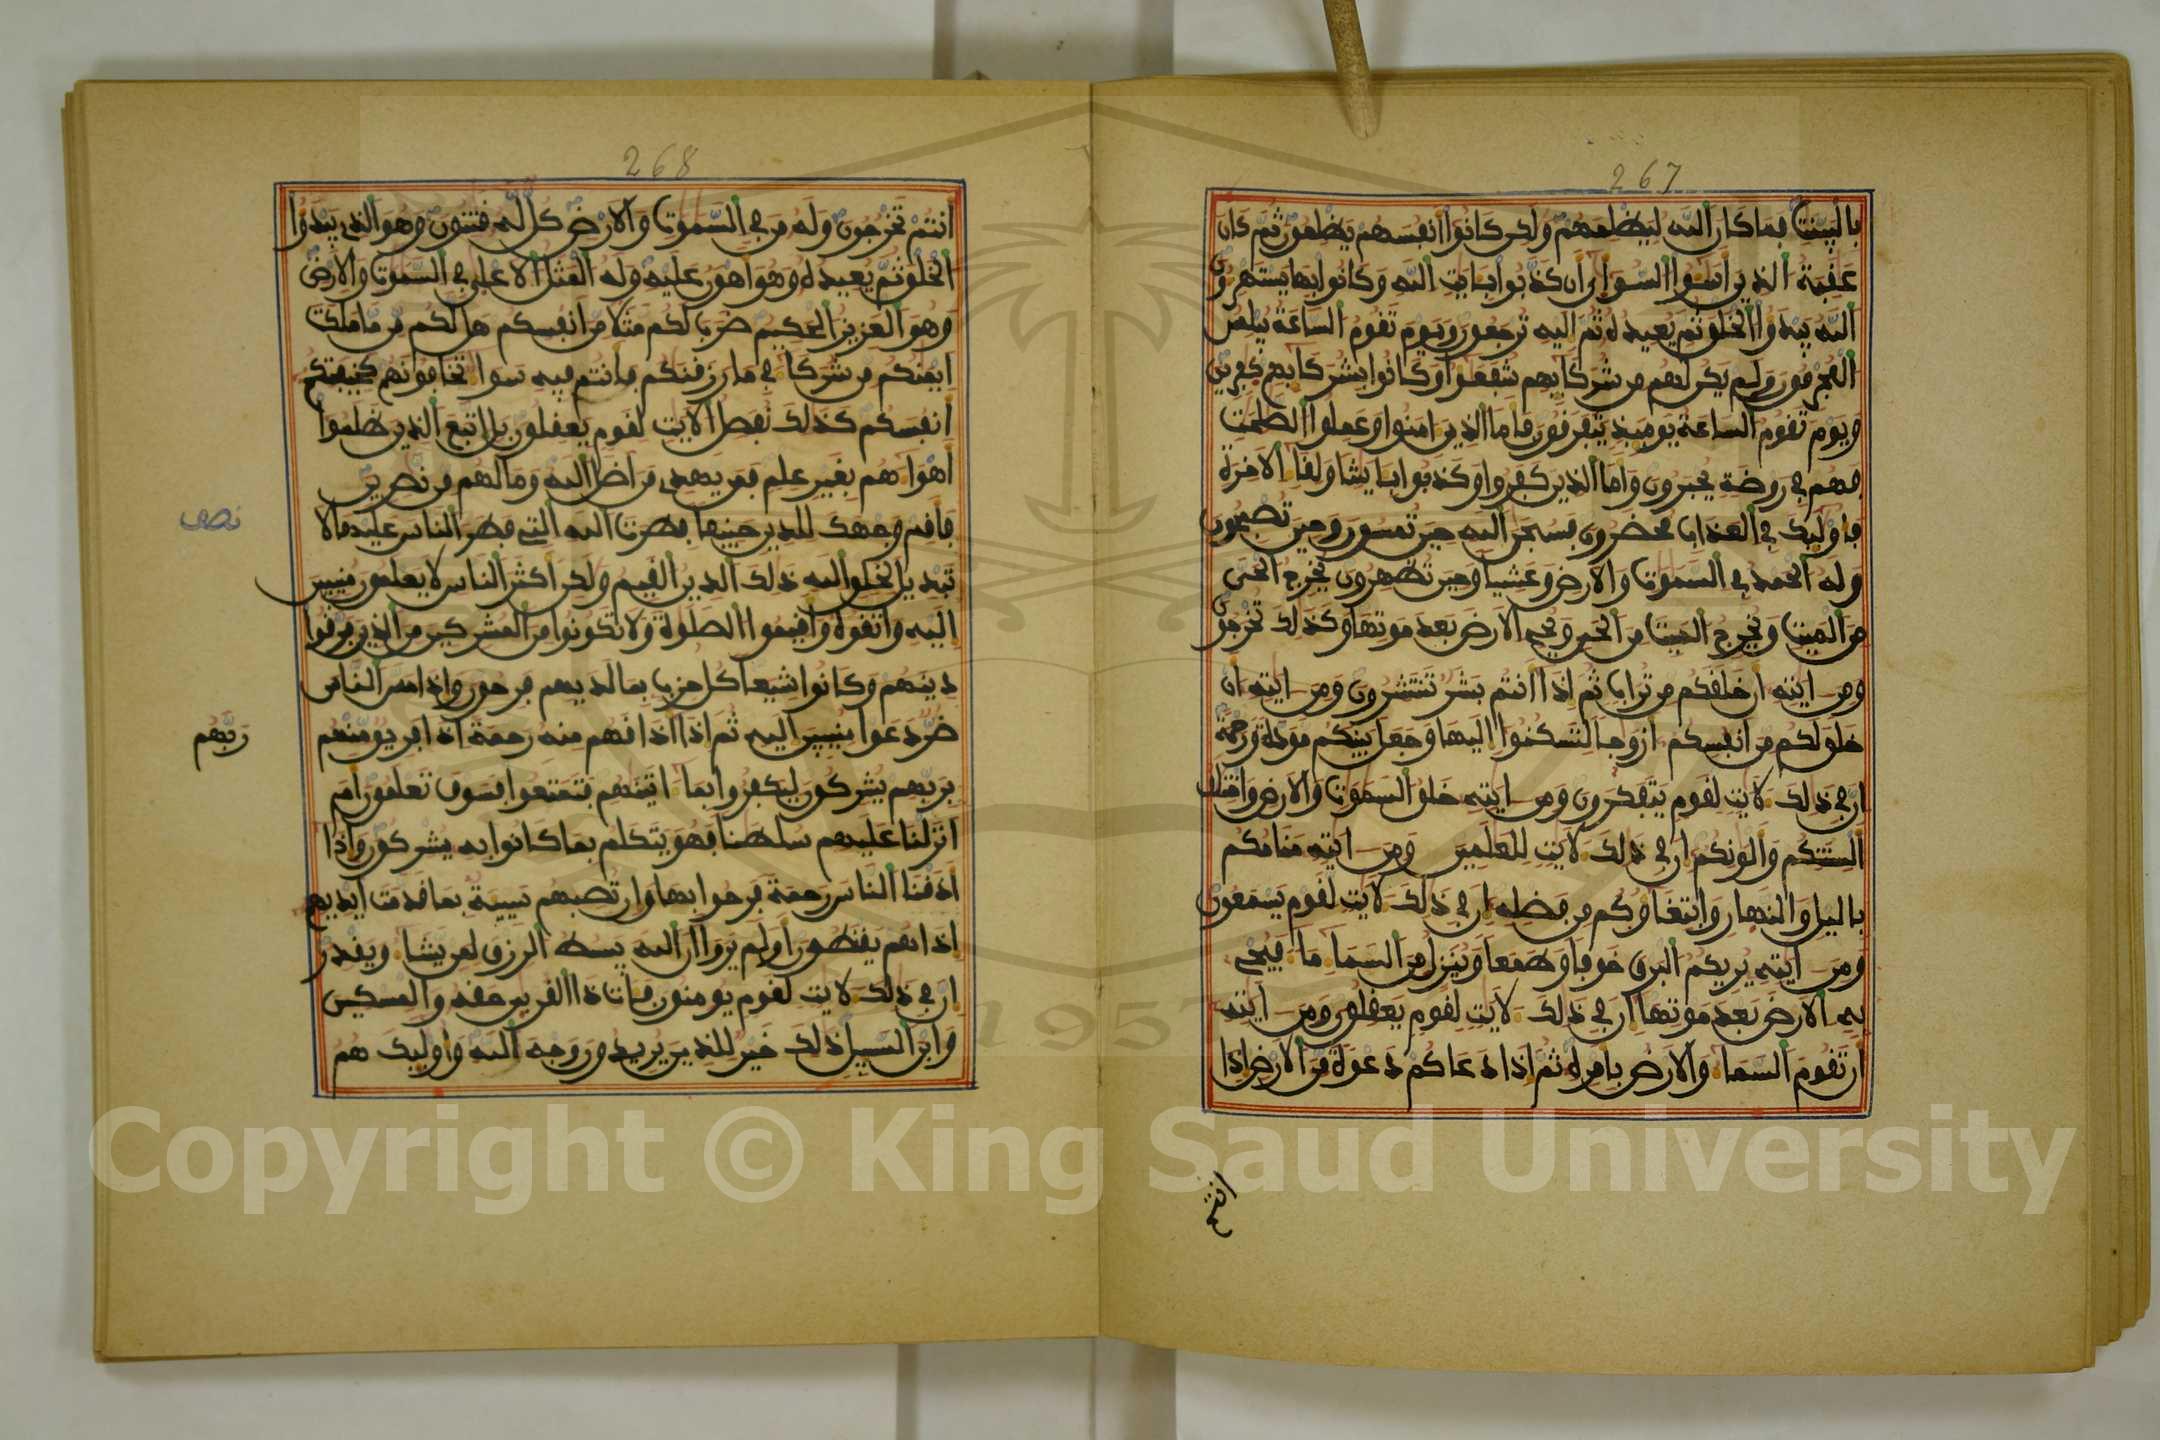 267
بالبينت فما كان الله ليظلمهم ولكن كانوا أنفسهم يظلمون ثم كان
عقبة الذين أسوا السوأى ان كذبوا بايت الله وكانوا بها يستهزون
الله يبدؤا الخلق ثم يعيده ثم اليه ترجعون ويوم تقوم الساعة يبلس
المجرمون ولم يكن لهم من شركايهم شفعوا وكانوا بشركايهم كفرين
ويوم تقوم الساعة يوميذ يتفرقون فاما الذين امنوا وعملوا الصلحت
فهم في روضة يحبرون واما الذين كفروا وكذبوا بايتنا ولقاء الاخرة
فاوليك في العذاب محضرون فسبحن الله حين تمسون وحين تصبحون
وله الحمد في السموت والارض وعشيا وحين تظهرون يخرج الحي
من الميت ويخرج الميت من الحي ويحي الارض بعد موتها وكذلك تخرجون
ومن ايته ان خلقكم من تراب ثم اذا انتم بشر تنتشرون ومن ايته ان
خلق لكم من انفسكم ازوجا لتسكنوا اليها وجعل بينكم مودة ورحمة
ان في ذلك لايت لقوم يتفكرون ومن ايته خلق السموت والارض واختلف
السنتكم والونكم ان في ذلك لايت للعلمين ومن ايته منامكم
باليل والنهار وابتغاوكم من فضله ان في ذلك لايت لقوم يسمعون
ومن ايته يريكم البرق خوفا وطمعا وينزل من السماء ماء فيحي
به الارض بعد موتها ان في ذلك لايت لقوم يعقلون ومن ايته
ان تقوم السماء والارض بامره ثم اذا دعاكم دعوة من الارض اذا
انتم
268
انتم تخرجون وله من في السموت والارض كل له قنتون وهو الذي يبدؤا
الخلق ثم يعيده وهو اهون عليه وله المثل الاعلى في السموت والارض
وهو العزيز الحكيم ضرب لكم مثلا من انفسكم هل لكم من ما ملكت
ايمنكم من شركاء في ما رزقنكم فانتم فيه سواء تخافونهم كخيفتكم
انفسكم كذلك نفصل الايت لقوم يعقلون بل اتبع الذين ظلموا
اهواءهم بغير علم فمن يهدي من اضل الله وما لهم من نصرين
فاقم وجهك للدين حنيفا فطرت الله التي فطر الناس عليها لا
تبديل لخلق الله ذلك الدين القيم ولكن اكثر الناس لا يعلمون منيبين
اليه واتقوه واقيموا الصلوة ولا تكونوا من المشركين من الذين فرقوا
دينهم وكانوا شيعا كل حزب بما لديهم فرحون واذا مس الناس
ضر دعوا منيبين اليه ثم اذا اذاقهم منه رحمة اذا فريق منهم
بربهم يشركون ليكفروا بما اتينهم فتمتعوا فسوف تعلمون ام
انزلنا عليهم سلطنا فهو يتكلم بما كانوا به يشركون واذا
اذقنا الناس رحمة فرحوا بها وان تصبهم سيية بما قدمت ايديهم
اذا هم يقنطون اولم يروا ان الله يبسط الرزق لمن يشاء ويقدر
ان في ذلك لايت لقوم يومنون فـات ذا القربى حقه والمسكين
وابن السبيل ذلك خير للذين يريدون وجه الله واوليك هم
نصف
ربهم
1957
Copyright © King Saud University